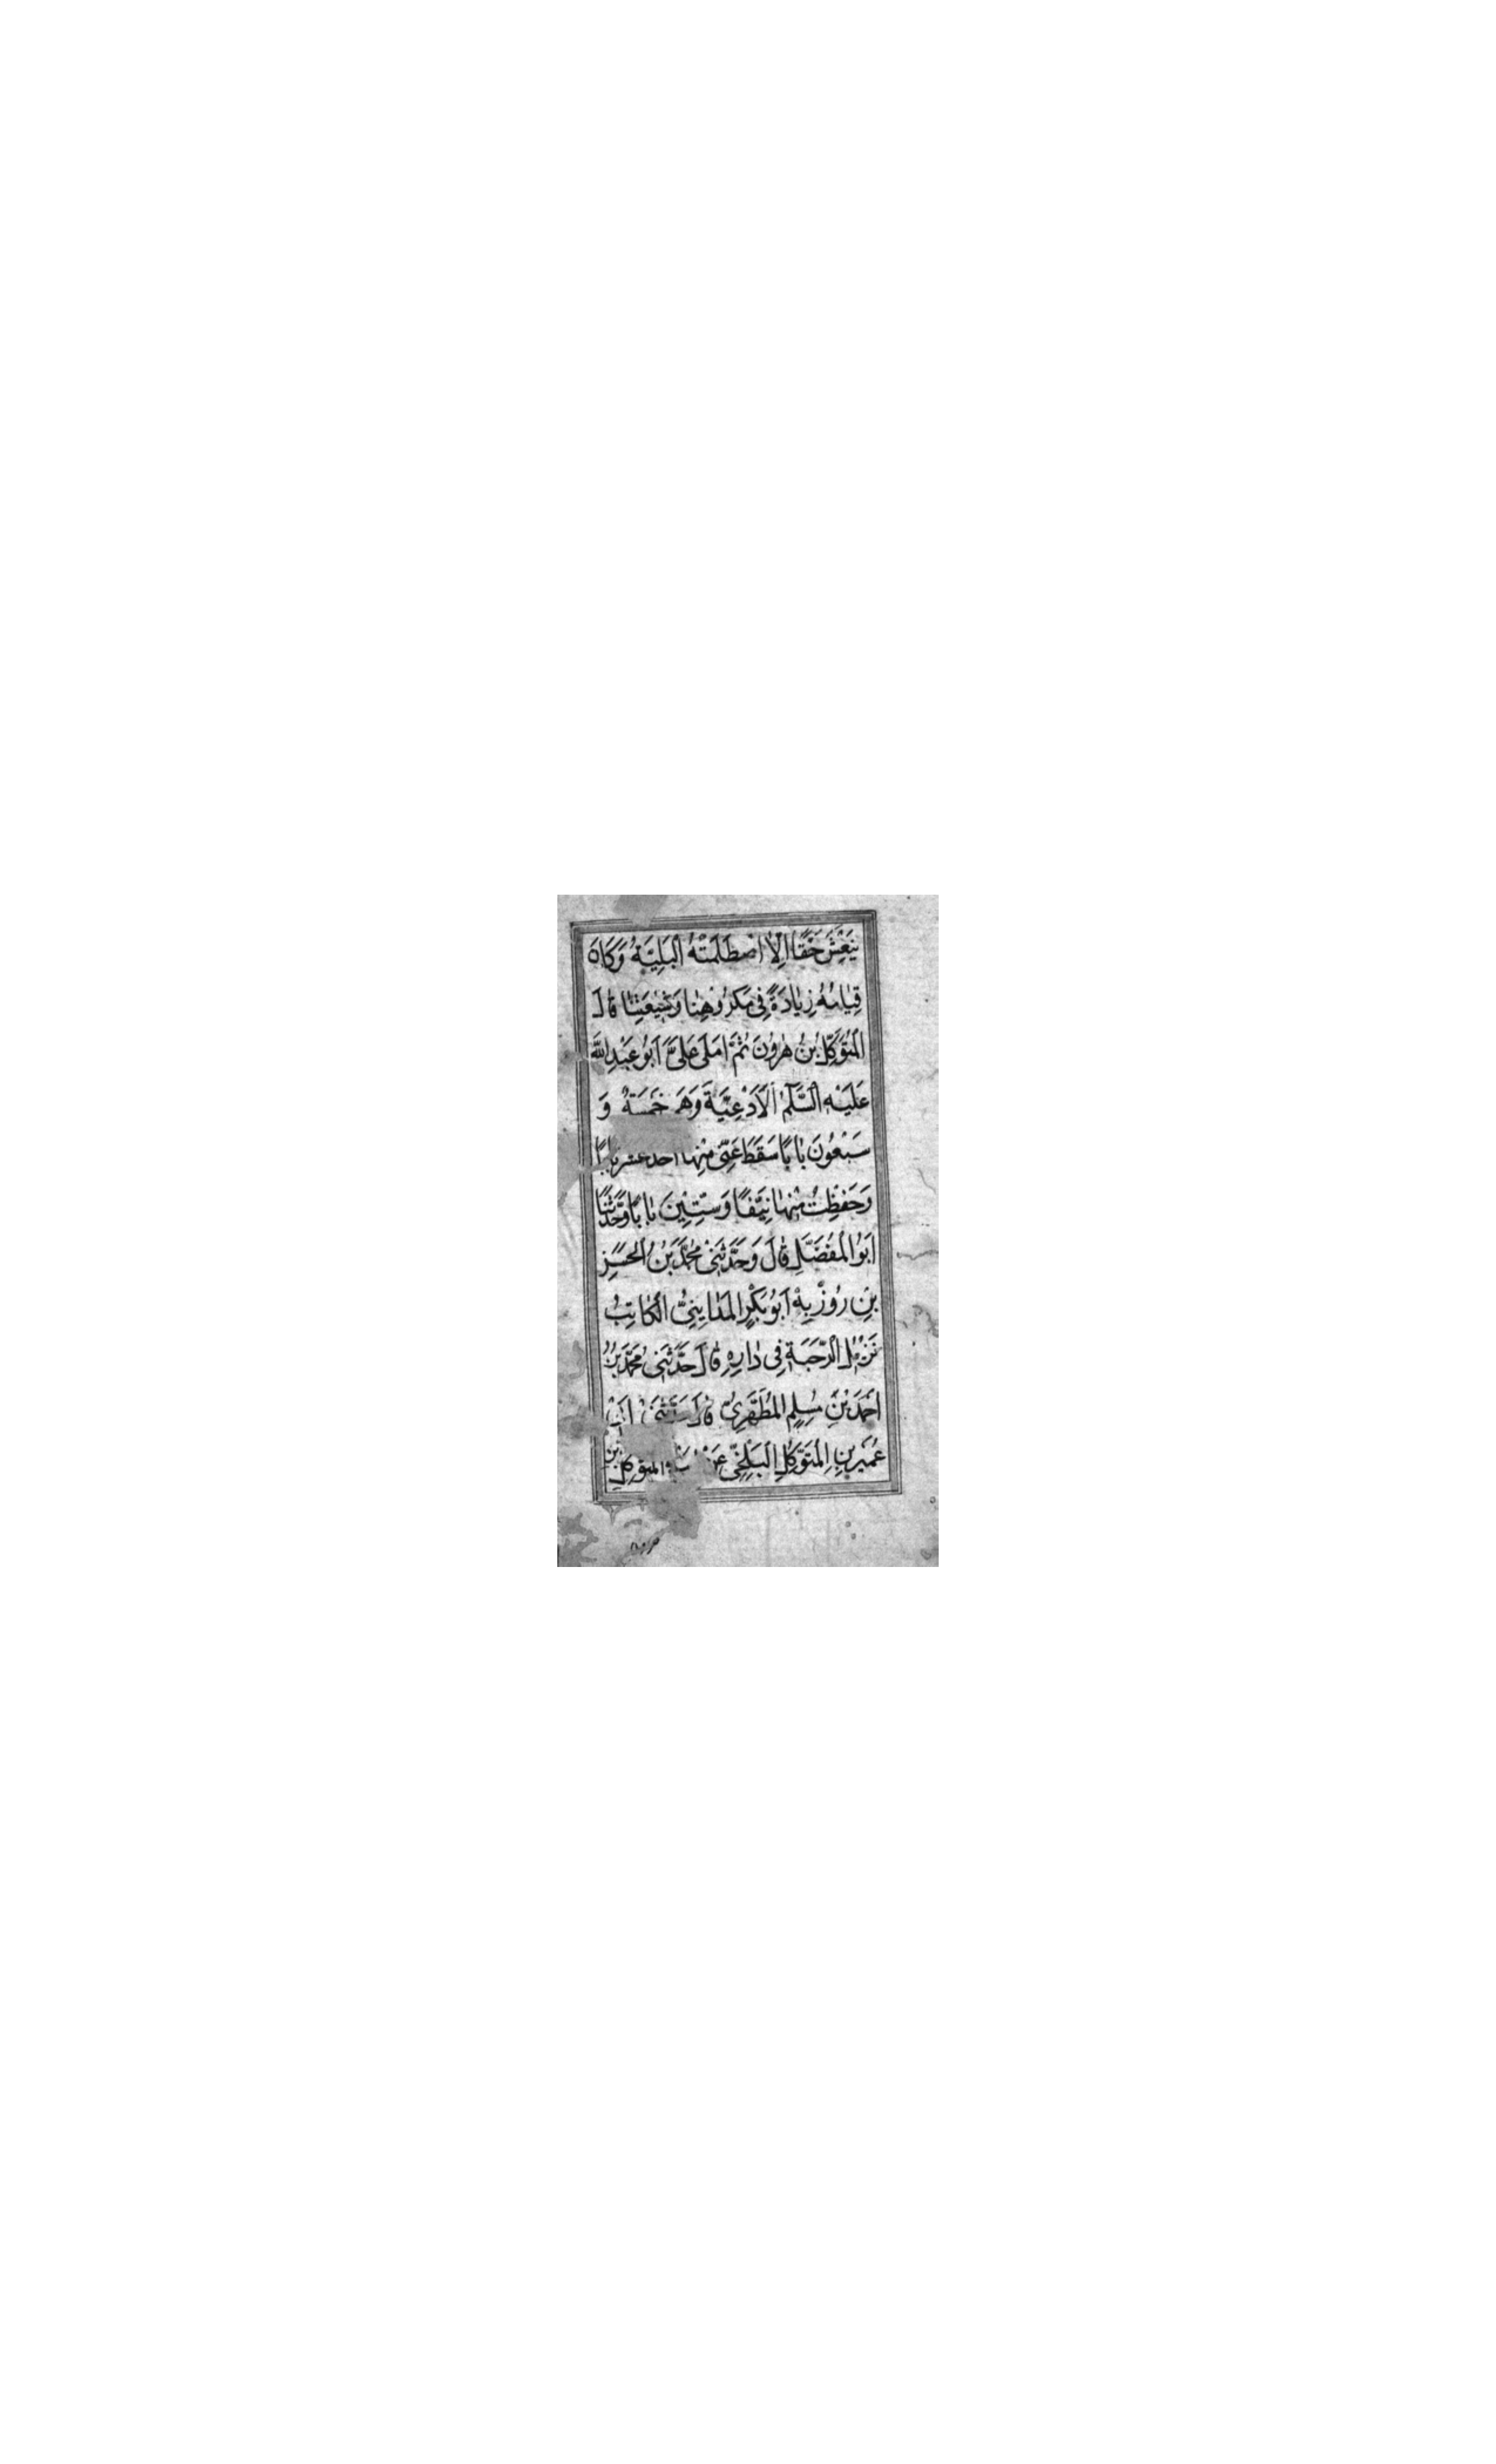 يَنْعَشَ حَقًّا اِلّا اصْطَلَمَتْهُ الْبَلِيَّةُ وَكَانَ
قِيامُهُ زِيادَةً فى مَكْرُوهِنا وَشيعَتِنا قالَ
الْمُتَوَكِّلُ بْنُ هٰرُونَ ثُمَّ اَمْلٰى عَلَىَّ اَبُو عَبْدِ اللّٰهِ
عَلَيْهِ السَّلٰمُ الْاَدْعِيَةَ وَهِىَ خَمْسَةٌ وَ
سَبْعُونَ بابًا سَقَطَ عَنّى مِنْها اَحَدَ عَشَرَ بابًا
وَحَفِظْتُ مِنْها نَيِّفًا وَسِتّينَ بابًا وَحَدَّثَنا
اَبُو الْمُفَضَّلِ قالَ وَحَدَّثَنى مُحَمَّدُ بْنُ الْحَسَنِ
بْنِ رُوزْبِهْ اَبُو بَكْرٍ الْمَدائِنِىُّ الْكاتِبُ
نَزيلُ الرَّحْبَةِ فى دارِهِ قالَ حَدَّثَنى مُحَمَّدُ بْنُ
اَحْمَدَ بْنِ مُسْلِمٍ الْمُطَهَّرِىُّ قالَ حَدَّثَنى اَبى
عُمَيْرِ بْنِ الْمُتَوَكِّلِ الْبَلْخِىِّ عَنْ الْمُتَوَكِّلِ بْنِ